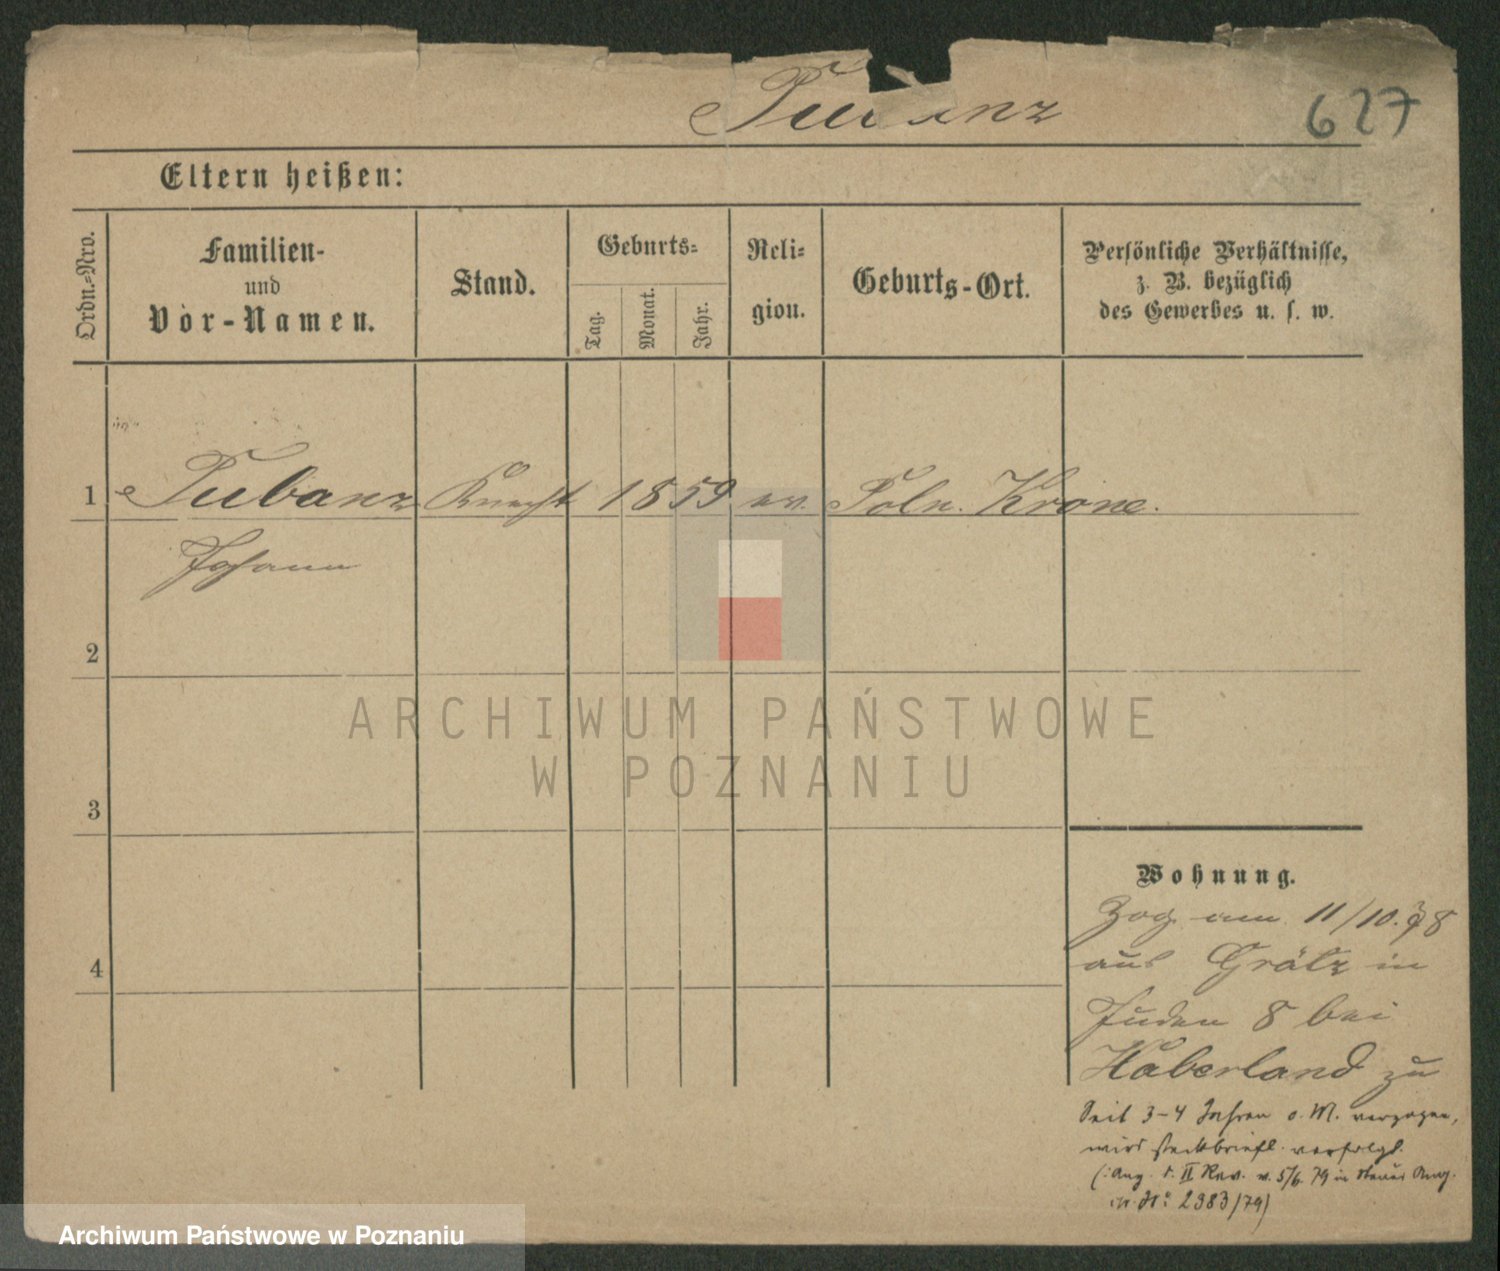 Tubanz
627
Eltern heißen:
Ordn.-Nro.
Familien-
und
Vor-Namen.
Stand.
Geburts-
Tag.
Monat.
Jahr.
Reli-
gion.
Geburts-Ort.
Persönliche Verhältnisse,
z. B. bezüglich
des Gewerbes u. s. w.
1 Tubanz Knecht 1859 ev. Poln. Krone.
Johann
2
ARCHIWUM PAŃSTWOWE
W POZNANIU
3
Wohnung.
Zog am 11/10. 78
aus Grätz in
4
Juden 8 bei
Haberland zu
Seit 3-4 Jahren o. M. verzogen,
wird steckbriefl. verfolgt.
(: Ang. d. II Rev. v. 5/6. 79 in
in No 2383/79)
Archiwum Państwowe w Poznaniu